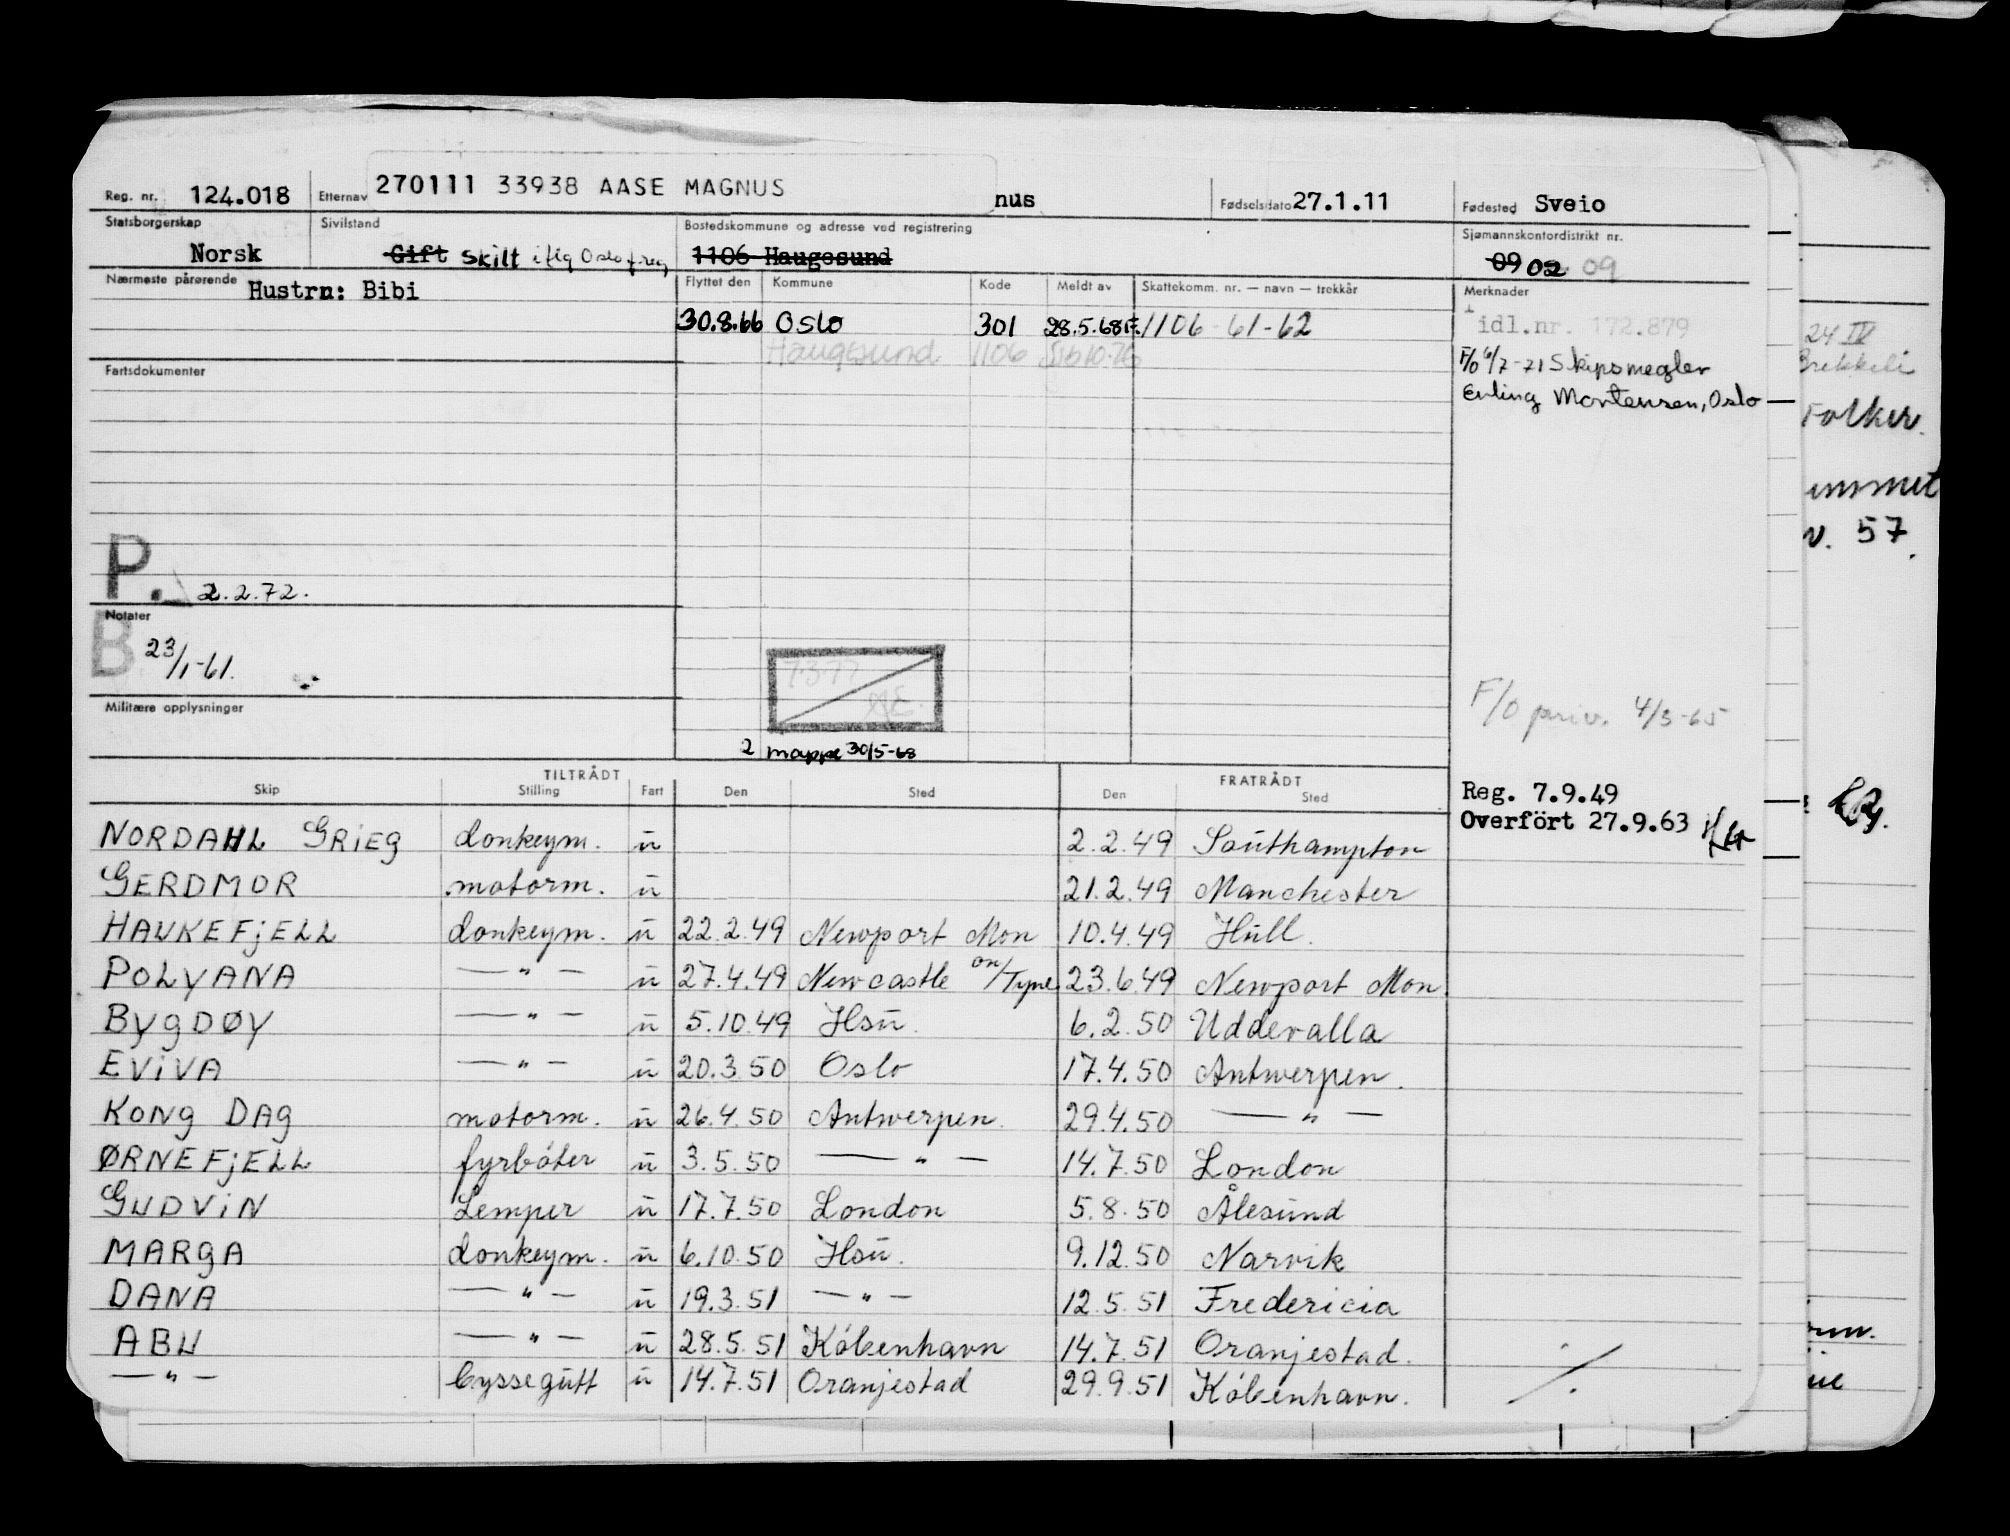 Reg. nr. 124.018 Etternav 270111 33938 AASE MAGNUS nus Fødselsdato 27.1.11 Fødested Sveio
Statsborgerskap Sivilstand Bostedskommune og adresse ved registrering Sjømannskontordistrikt nr.
Norsk Gift Skilt iflg Oslo f.reg 1106 Haugesund 09 02 09
Nærmeste pårørende Hustru: Bibi Flyttet den Kommune Kode Meldt av Skattekomm. nr. — navn — trekkår Merknader
30.8.66 Oslo 301 28.5.68 F. 1106 - 61-62 idl.nr. 172.879
Haugesund 1106 10.76 F/o 6/7-71 Skipsmegler
Fartsdokumenter Erling Mortensen, Oslo
24 IV
Folker.
v. 57.
P. 2.2.72.
Notater
B 23/1-61.
7.3.77
ÅE.
Militære opplysninger F/o priv. 4/3-65
2 mappe 30/5-68
TILTRÅDT FRATRÅDT
Skip Stilling Fart Den Sted Den Sted Reg. 7.9.49
Overfört 27.9.63
NORDAHL GRiEg donkeym. ū 2.2.49 Southampton
GERDMOR motorm. ū 21.2.49 Manchester
HAUKEFjELL donkeym. ū 22.2.49 Newport Mon 10.4.49 Hull.
POLyANA —"— ū 27.4.49 Newcastle on/Tyne 23.6.49 Newport Mon.
BygDØy —"— ū 5.10.49 Hsū. 6.2.50 Uddevalla
EViVA —"— ū 20.3.50 Oslo 17.4.50 Antwerpen.
KONg DAg motorm. ū 26.4.50 Antwerpen. 29.4.50 —"—
ØRNEFjELL fyrbóter ū 3.5.50 —"— 14.7.50 London
GUDViN Lemper ū 17.7.50 London 5.8.50 Ålesund
MARgA donkeym. ū 6.10.50 Hsū. 9.12.50 Narvik
DANA —"— ū 19.3.51 —"— 12.5.51 Fredericia
ABU —"— ū 28.5.51 Kóbenhavn 14.7.51 Oranjestad.
—"— byssegutt ū 14.7.51 Oranjestad 29.9.51 Kóbenhavn.